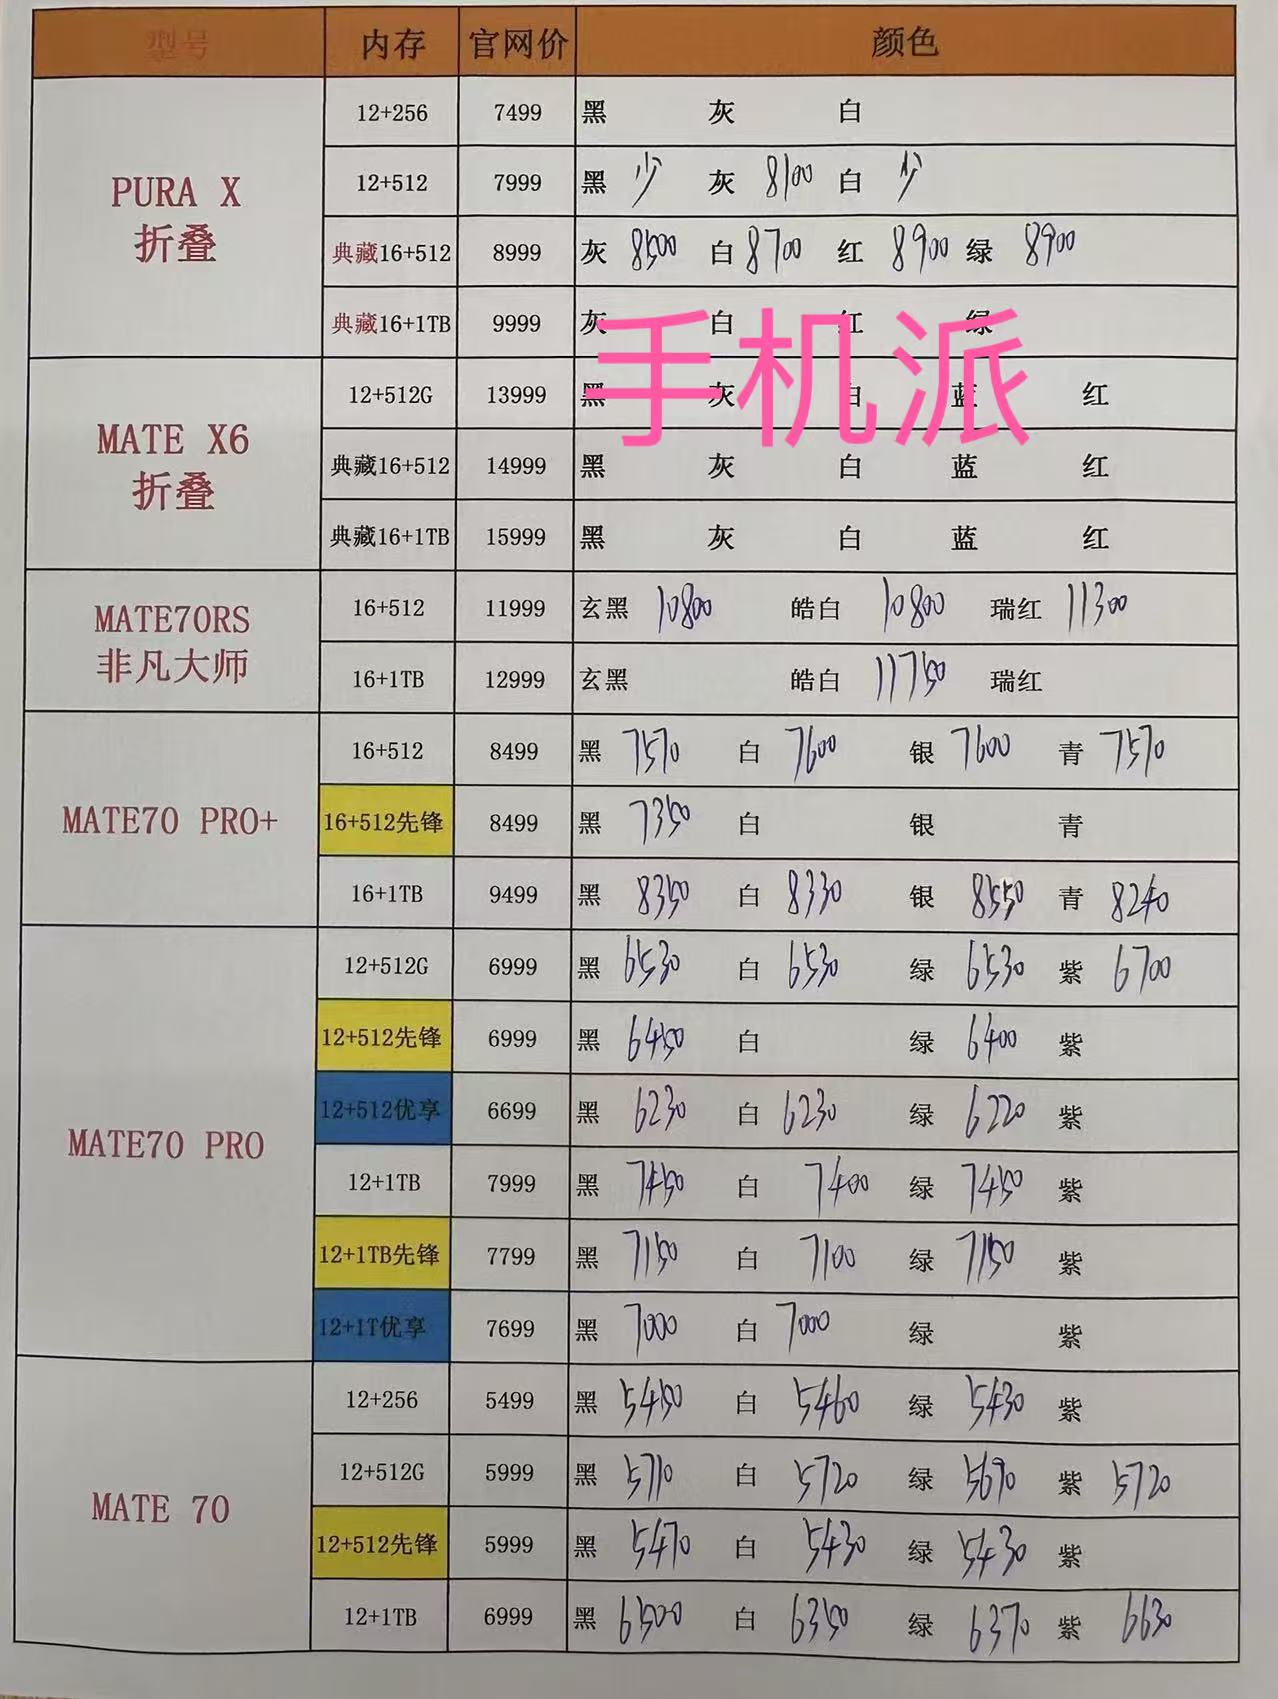 型号 内存 官网价 颜色
PURA X
折叠
12+256 7499 黑 灰 白
12+512 7999 黑 少 灰 8100 白 少
典藏16+512 8999 灰 8500 白 8700 红 8900 绿 8900
典藏16+1TB 9999 灰 白 红 绿
手机派
MATE X6
折叠
12+512G 13999 黑 灰 白 蓝 红
典藏16+512 14999 黑 灰 白 蓝 红
典藏16+1TB 15999 黑 灰 白 蓝 红
MATE70RS
非凡大师
16+512 11999 玄黑 10800 皓白 10800 瑞红 11300
16+1TB 12999 玄黑 皓白 11750 瑞红
MATE70 PRO+
16+512 8499 黑 7570 白 7600 银 7600 青 7570
16+512先锋 8499 黑 7350 白 银 青
16+1TB 9499 黑 8350 白 8330 银 8550 青 8240
MATE70 PRO
12+512G 6999 黑 6530 白 6530 绿 6530 紫 6700
12+512先锋 6999 黑 6450 白 绿 6400 紫
12+512优享 6699 黑 6230 白 6230 绿 6220 紫
12+1TB 7999 黑 7450 白 7400 绿 7450 紫
12+1TB先锋 7799 黑 7150 白 7100 绿 7150 紫
12+1T优享 7699 黑 7000 白 7000 绿 紫
MATE 70
12+256 5499 黑 5450 白 5460 绿 5430 紫
12+512G 5999 黑 5710 白 5720 绿 5690 紫 5720
12+512先锋 5999 黑 5470 白 5430 绿 5430 紫
12+1TB 6999 黑 6500 白 6350 绿 6370 紫 6630